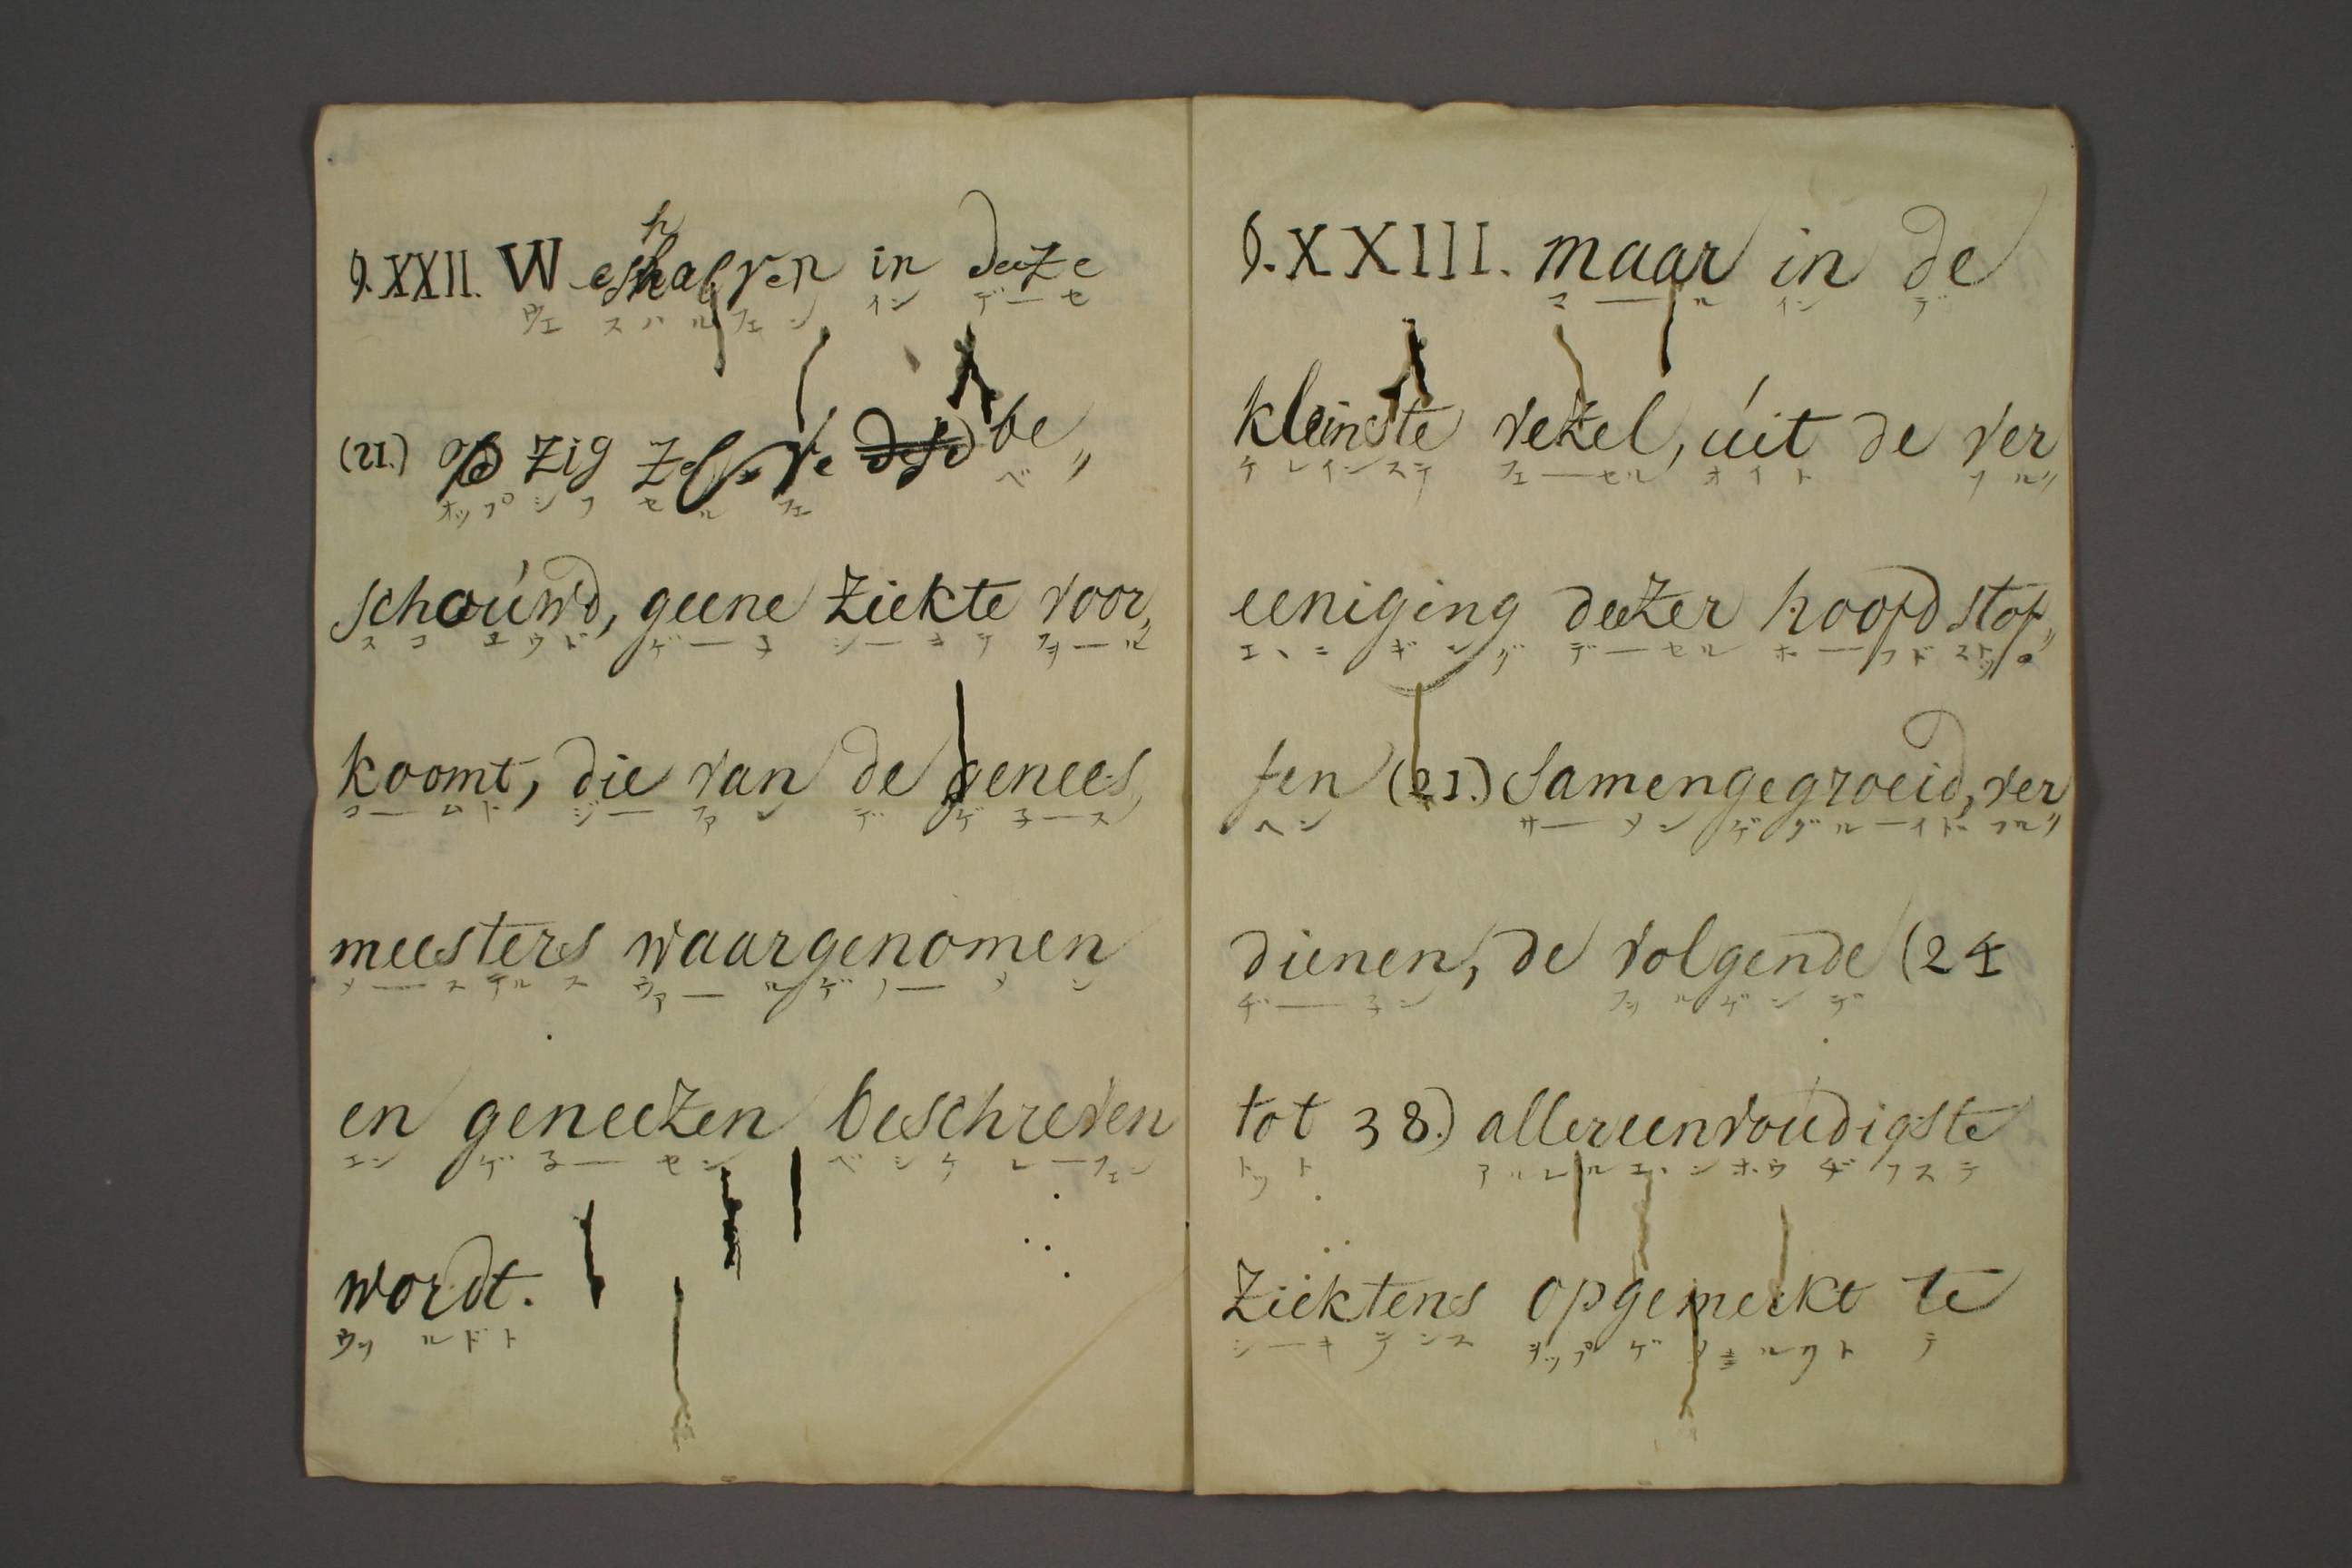 §.XXII. Weshalven in deeze
ウェスハルフェン イン デーセ
(21.) op zig zelve be„
オップ シフ セルフェ ベ
schoúwd, geene ziekte voor„
スコヱウド ゲー子 シーキテ フヲール
koomt, die van de genees„
コームト ジー ファン デ ゲ子ース
meesters waargenomen
メーステルス ウァールゲノーメン
en geneezen beschreven
エン ゲ子ーセン ベシケレーフェン
wordt.
ウヲルドト
§.XXIII. maar in de
マール イン デ
kleinste vezel, úit de ver
ケレインステ フェーセル オイト フルリ
eeniging deezer hoofdstof„
エヽニギング デーセル ホーフドストッ
fen (21.) samengegroeid, ver
ヘン サーメンゲグルーイド フルリ
dienen, de volgende (24
ヂー子ン フヲルゲンデ
tot 38.) allereenvoudigste
トット アルレルエヽンホウヂフステ
Ziektens opgemerkt te
シーキテンス ヲップゲメルクト テ